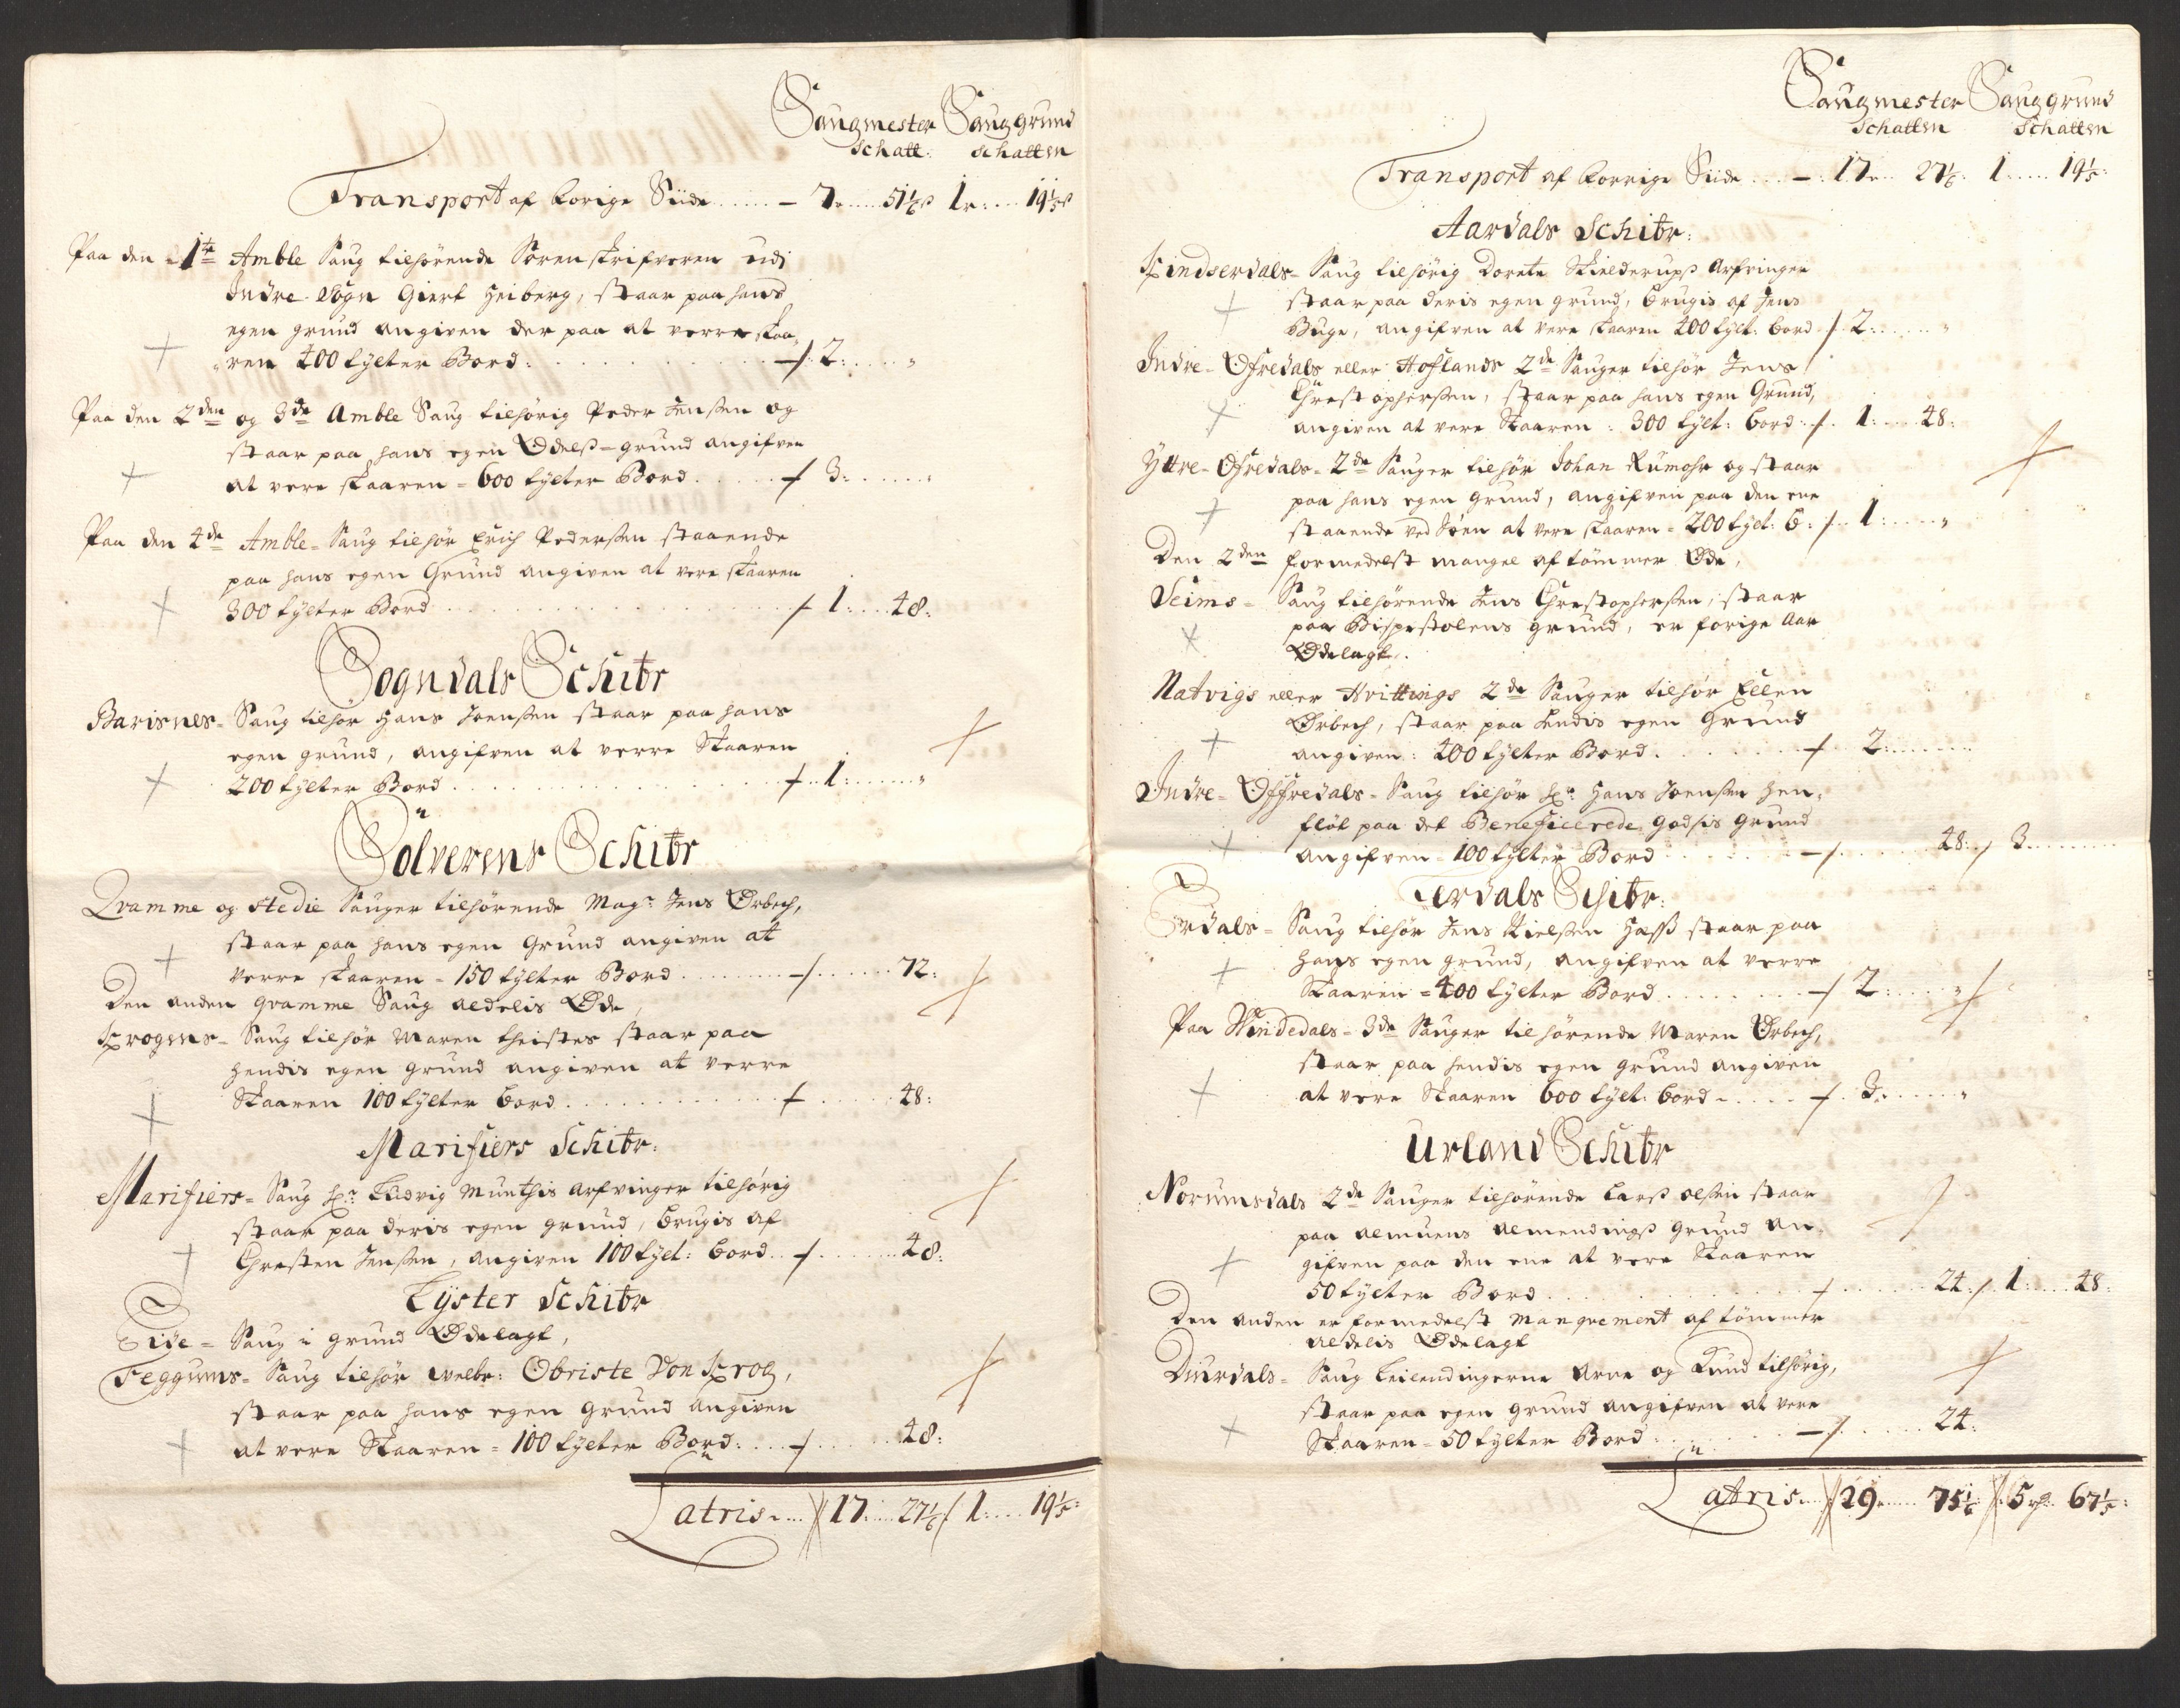 Saugmester Sauggrund
Schatt. Schatten
Transport af forige Siide ...... - 7r ..... 51 1/6 ß 1r: .... 19 1/5 ß
Paa den 1te Amble Saug tilhørende Sorenskrifveren udj
Indre Sogn Giert Heiberg, staar paa hans
egen grund angiven der paa at verre skaa,
"ren 400 tylter Bord: . . . . . . -/. 2: ..... "
Paa den 2den og 3de Amble Saug tilhørig Peder Jenßen og
staar paa hans egen Odelß=grund angifven
at vere skaaren = 600 tylter Bord ...... / 3: ....... "
Paa den 4de Amble=Saug tilhør Erich Pederßen staaende
paa hans egen Grund angiven at vere skaaren
300 tylter Bord . . . . . . / 1: .... 48:
Sogndals Schibr
Barisnes= Saug tilhør Hans Joenßen staar paa hans
egen grund, angifven at verre Skaaren
200 tylter Bord . . . . . . / .. 1: ....... "
Sölverens Schibr
Qvamme og Stedie Sauger tilhørende Magr: Jens Ørbech,
staar paa hans egen Grund angiven at
verre skaaren = 150 tylter Bord ....... -/. ..... 72:
Den anden qvamme Saug aldelis Øde,
Krogens= Saug tilhør Maren theistes staar paa
hendis egen grund angiven at verre
Skaaren 100 tylter bord . . . . . . / ..... 48:
Marifiers Schibr:
Marifiers= Saug Sr: Ludvig Munthis Arfvinger tilhørig
staar paa deris egen grund, brugis af
Chresten Jenßen, angiven 100 tylt: bord .. / ...... 48:
Lyster Schibr
Eide= Saug i grund Ødelagt,
Feggums= Saug tilhør welbr: Obriste Von Krog,
staar paa hans egen Grund angiven
at vere Skaaren = 100 tylter Bord: ... / ...... 48:
Latris .... 17: .... 27 1/6 / 1: .... 19 1/5:
Saugmester Sauggrund
Schatten Schatten
Transport af forrige Siide ... -: 17r .. 27 1/6: 1: .... 19 1/5:
Aardals Schibr:
Kindserdals= Saug tilhørig Dorete Skielderupß Arfvinger
staar paa deris egen grund, brugis af Jens
Buge, angifven at vere skaaren 400 tylt: bord / 2: ...... "
Indre=Ofredals eller Hoflands 2de Sauger tilhør Jens
Christopherßen, staar paa hans egen Grund,
angiven at vere Skaaren: 300 tylt: bord: /. 1: .... 48:
Yttre=Ofredals= 2de Sauger tilhør Johan Rumohr og staar
paa hans egen grund, angifven paa den ene
staaende ved Søen at vere skaaren = 200 tylt: b: /. 1: ..... "
Den 2den formedelst mangel af tømmer Øde,
Seims= Saug tilhørende Jens Christopherßen, staar
paa Bispestolens grund, er forige Aar
Ødelagt.
Natvigs eller Hvittings 2de Sauger tilhør Ellen
Ørbech, staar paa hendis egen Grund
angiven: 400 tylter Bord . . . . . . / 2: ........
Indre=Offredals=Saug tilhør Sr: Hans Joenßen Hen,
fløt paa det Beneficerede godsis Grund
angifven = 100 tylter Bord . . . . . -/. ..... 48: / 3. ........
Lerdals Schibr:
Erdals= Saug tilhør Jens Nielßen Hæss staar paa
Hans egen grund, angifven at verre
Skaaren = 400 tylter Bord ....... -/ 2: ..... "
Paa Windedals= 3de Sauger tilhørende Maren Ørbech,
staar paa hendis egen grund angiven
at vere Skaaren 600 tylt: bord ..... /. 3. ...... "
Urland Schibr
Norumsdals 2de Sauger tilhørende Larß olßen staar
paa almuens almendingß grund an,
gifven paa den ene at vere Skaaren
50 tylter Bord . . . . . . / ...... 24: / 1: .... 48:
Den anden er formedelst Manqvement af tømmer
aldelis Ødelagt
Diurdals= Saug Leilendingerne Arne og Knud tilhørig,
staar paa egen grund angifven at vere
Skaaren = 50 tylter Bord . . . . . -/. ..... 24:
Latris .... 29. ..... 75 1/6: 5 rd: 67 1/5: